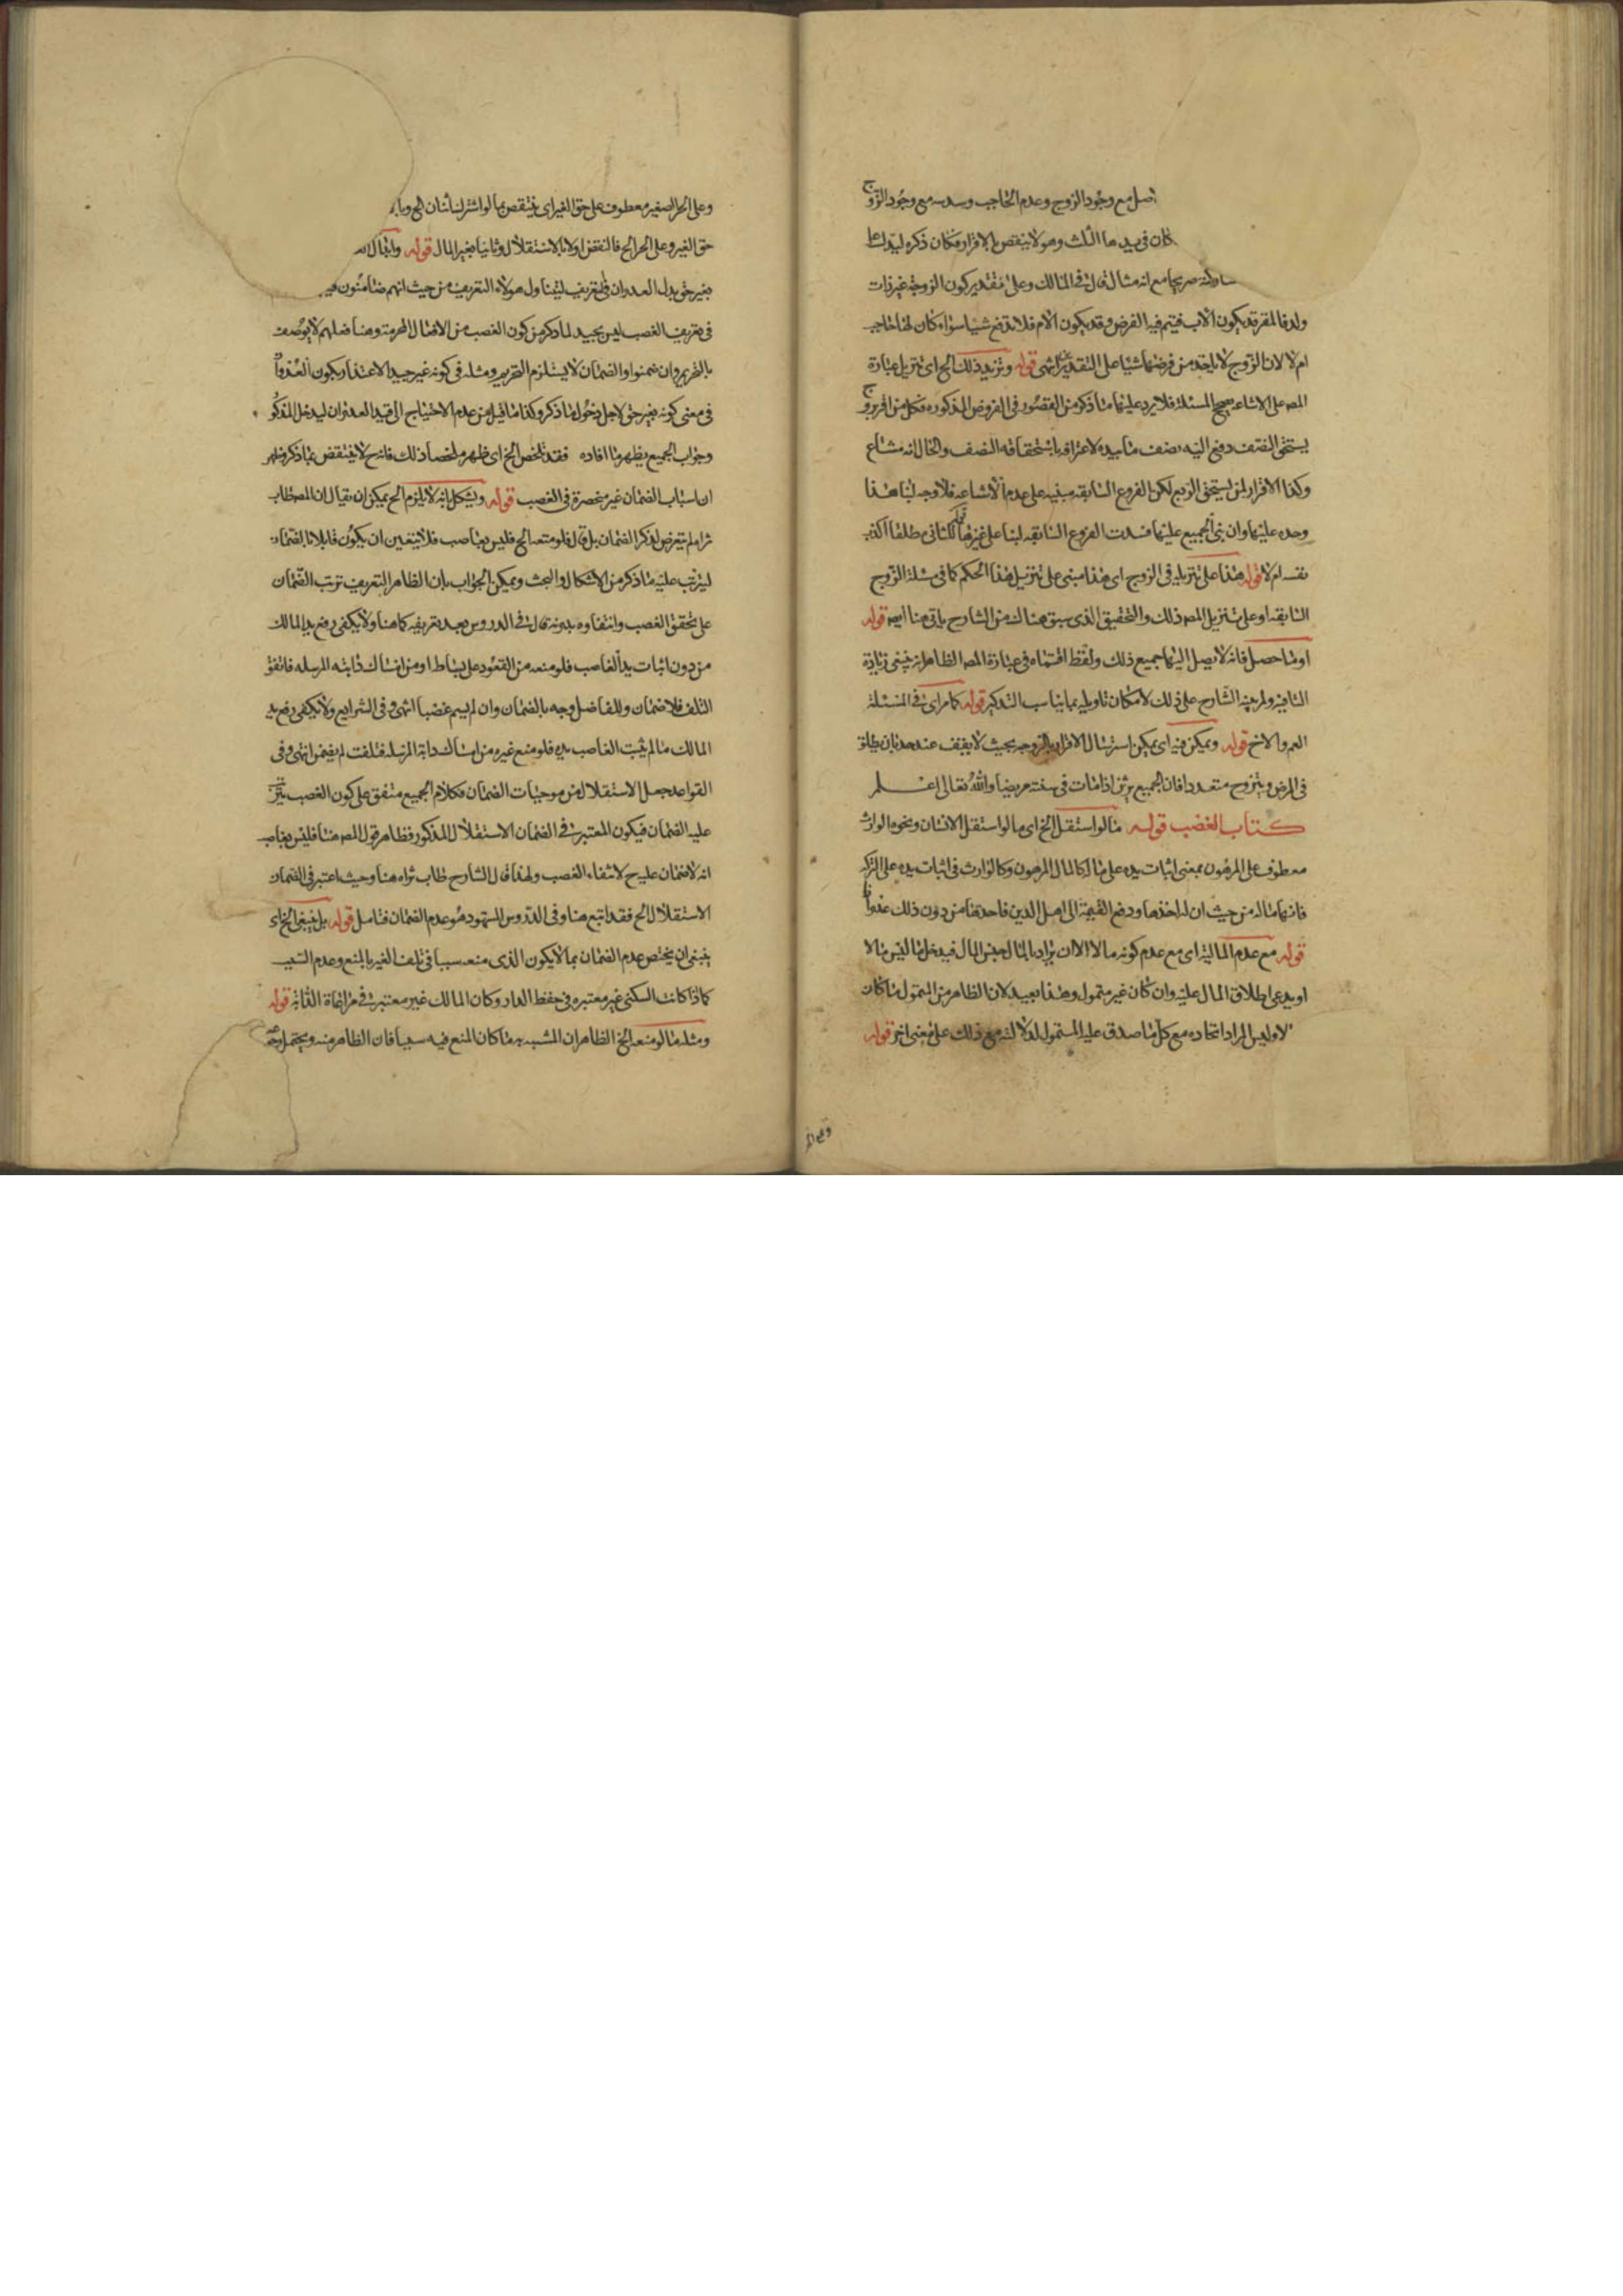 اصل مع وجود الزوج وعدم الحاجب وسدسه مع وجود الزوج
كان في يدها الثلث وهو لا ينقص بالاقرار فكان ذكره ليدل على
صريحا مع انه مثال قال في المسالك وعلى تقدير كون الزوجة غير ذات
ولد فالمقر قد يكون الاب فيتم فيه الفرض وقد يكون الام فلا تدفع شيئا سواء كان لها حاجب
ام لا لان الزوج لا ياخذ من فرضها شيئا على التقديرين انتهى قوله وتزيد ذلك الخ اى تنزيل عبارة
المص على الاشاعة يصحح المسئلة فلا يرد عليها ما ذكر من القصور في الفروض المذكورة فكل من اقر بزوج
يستحق النصف دفع اليه نصف ما بيده لاعترافه باستحقاقه النصف والحال انه مشاع
وكذا الاقرار لمن يستحق الربع لكن الفروع السابقة مبنية على عدم الاشاعة فلا وجه لبنا هذا
وحده عليها وان بنى الجميع عليها فسدت الفروع السابقة لبنا على غيرها كالثاني مطلقا اكذب
نفسه ام لا قوله هذا على تنزيله في الزوج اى هذا مبنى على تنزيل هذا الحكم كما في مسئلة الزوج
السابقة او على تنزيل المص ذلك والتحقيق الذى سبق هناك من الشارح ياتي هنا ايضه قوله
او ما حصل فانه لا يصل اليها جميع ذلك ولفظ اقتسماه في عبارة المص الظاهر انه يثنى زيادة
التافيه ولم ينبه الشارح على ذلك لامكان تاويله بما يناسب التذكير قوله كما مر اى في المسئلة
العم والاخ قوله ويمكن فيه اى يمكن استرسال الاقرار بالزوجه بحيث لا يقف عند حد بان يطلق
في المرض ويتزوج متعددا فان الجميع يرثن اذا مات في سنته مريضا والله تعالى اعلم
كتاب الغصب قوله ما لو استقل الخ اى ما لو استقل الانسان ونحوه الوارث
معطوف على المرهون بمعنى اثبات يده على ماله كالمال المرهون وكالوارث في اثبات يده على التركه
فانها ماله من حيث ان له اخذها ودفع القيمة الى اهل الدين فاخذها من دون ذلك عدوانا
قوله مع عدم المالية اى مع عدم كونه مالا الا ان يراد بالمال جنس المال فيدخل ما ليس مالا
او يدعى اطلاق المال عليه وان كان غير متمول وهذا بعيد لان الظاهر من التمول ما كان
لا وليس المراد اتحاده مع كل ما صدق عليه المتمول لدلالته مع ذلك على معنى اخر قوله
وعلى الحر الصغير معطوف على حق الغير اى ينتقص بما لو اشترك اثنان الخ وبا
حق الغير وعلى الحر الخ فالنقض اولا بالاستقلال وثانيا بغير المال قوله وابدال
بغير حق بدل العدوان في تعريف ليتناول هولاء التعريف من حيث انهم ضامنون
في تعريف الغصب ليس بجيد لما ذكر من كون الغصب من الافعال المحرمة وهنا فعلهم لا يوصف
بالتحريم وان ضمنوا والضمان لا يستلزم التحريم ومثله في كونه غير جيد الاعتذار بكون العدوان
في معنى كونه بغير حق لاجل دخول ما ذكر وكذا ما قيل من عدم الاحتياج الى قيد العدوان ليدخل المذكور
وجواب الجميع يظهر مما افاده فقد تلخص الخ اى ظهر ملخصا ذلك فانه ح لا ينتقض بما ذكر فظهر
ان اسباب الضمان غير منحصرة في الغصب قوله ويشكل بانه لا يلزم الخ يمكن ان يقال ان المص طاب
ثراه لم يتعرض لذكر الضمان بل قال فلو منعه الخ فليس بغاصب فلا يتعين ان يكون قابلا بالضمان
ليترتب عليه ما ذكر من الاشكال والبحث ويمكن الجواب بان الظاهر التعريف ترتب الضمان
على تحقق الغصب وانتفاوه بدونه قال في الدروس بعد تعريفه كما هنا ولا يكفى رفع يد المالك
من دون اثبات يد الغاصب فلو منعه من القعود على بساطه او من امساك دابته المرسله فاتفق
التلف فلا ضمان وللفاضل وجه بالضمان وان لم يسم غصبا انتهى وفي الشرايع ولا يكفى رفع يد
المالك ما لم يثبت الغاصب يده فلو منع غيره من امساك دابة المرسلة فتلفت لم يضمن انتهى وفي
القواعد جعل الاستقلال من موجبات الضمان فكلام الجميع متفق على كون الغصب يترتب
عليه الضمان فيكون المعتبر في الضمان الاستقلال المذكور فظاهر قول المص هنا فليس بغاصب
انه لا ضمان عليه ح لانتفاء الغصب ولهذا قال الشارح طاب ثراه هنا وحيث اعتبر في الضمان
الاستقلال الخ فقد اتبع هنا وفي الدروس المشهور وهو عدم الضمان فتامل قوله بل ينبغى الخ اى
ينبغى ان يختص عدم الضمان بما لا يكون الذى منعه سببا في تلف الغير بالمنع وعدم السبب
كما اذا كانت السكنى غير معتبره في حفظ الدار وكان المالك غير معتبر في مراعاة الدابة قوله
ومثله ما لو منعه الخ الظاهر ان المشبه به ما كان المنع فيه سببا فان الظاهر منه ويحتمل